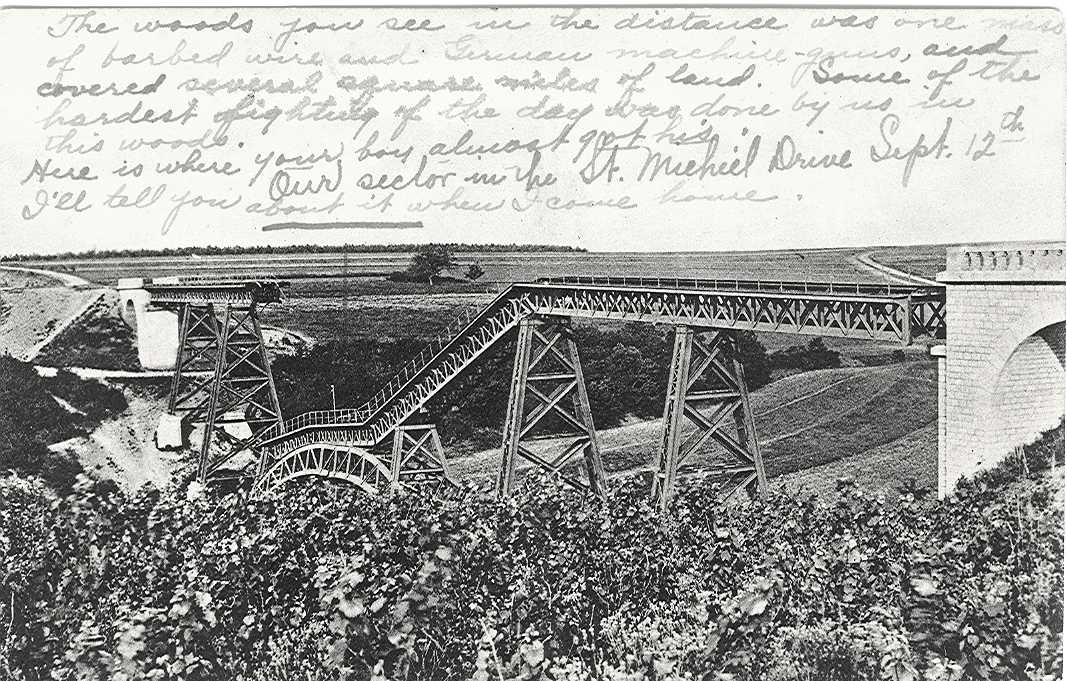 The woods you see in the distance was one mass
of barbed wire and German machine-guns, and
covered several square miles of land. Some of the
hardest fighting of the day was done by us in
this woods.
Here is where your boy almost got his.
Our sector in the St. Miehiel Drive Sept. 12th
I'll tell you about it when I come home.